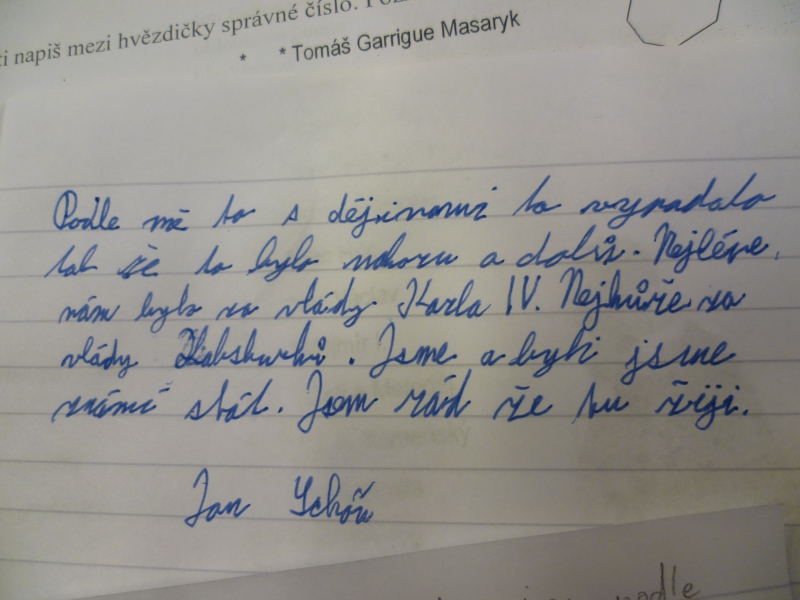 ti napiš mezi hvězdičky správné číslo.
* * Tomáš Garrigue Masaryk
Podle mě to s dějinami to vypadalo
tak že to bylo nahoru a dolů. Nejlépe
nám bylo za vlády Karla IV. Nejhůře za
vlády Habsburků. Jsme a byli jsme
známí stát. Jsem rád že tu žiji.
Jan
podle